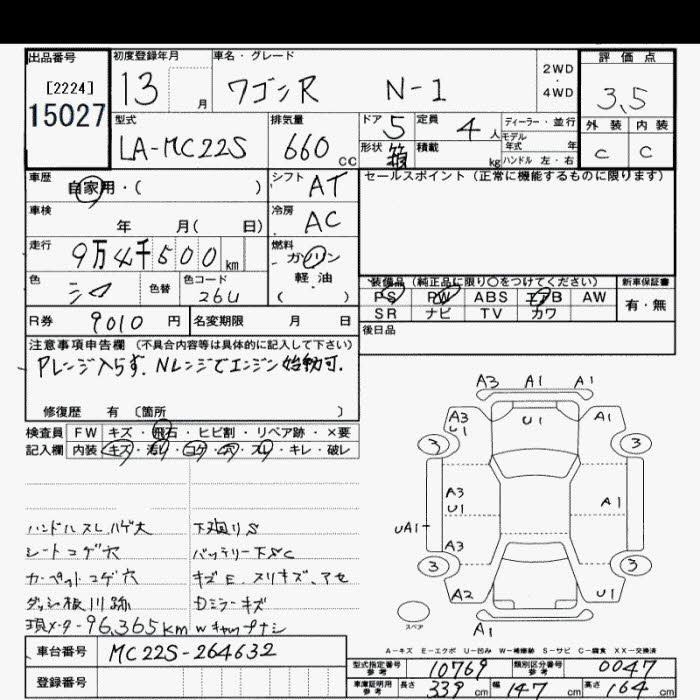 出品番号 初度登録年月 車名・グレード 評価点
[2224] 15027 13 月 ワゴンR N-1 2WD・4WD 3.5
型式 排気量 ドア 5 定員 4人 ディーラー・並行 外装 内装
LA-MC22S 660cc 形状 箱 積載 kg モデル年式 年 C C
ハンドル 左・右
車歴 自家用・( ) シフト AT セールスポイント(正常に機能するものに限ります)
車検 年 月( 日) 冷房 AC
走行 9万4千500km 燃料 ガソリン 軽・油 ( )
色 シロ 色替 色コード 26U 装備品(純正品に限り○をつけてください) 新車保証書
PS PW ABS エアB AW 有・無
SR ナビ TV カワ
R券 9010円 名変期限 月 日 後日品
注意事項申告欄(不具合内容等は具体的に記入して下さい)
Pレンジ入らず.Nレンジでエンジン始動可.
修復歴 有 〔箇所 〕
検査員 FW キズ・飛石・ヒビ割・リペア跡・×要
記入欄 内装 キズ・汚れ・コゲ・穴・スレ・キレ・破レ
A3 A1 A1
A3 U1 U1 A1
3 3
A3 U1 A1
UA1
A3
3 3
A2 U1
スペア A1
ハンドルスレ,ハゲ大 下廻りS
シートコゲ穴 バッテリー下SC
カーペットコゲ穴 キズE.スリキズ.アセ
ダッシ板川跡 Dミラーキズ
現メーター96,365km Wキャップナシ
A-キズ E-エクボ U-凹み W-補修跡 S-サビ C-腐食 XX-交換済
車台番号 MC22S-264632
登録番号
型式指定番号 参考 10769 類別区分番号 参考 0047
車庫証明用 参考 長さ 339cm 幅 147cm 高さ 164cm